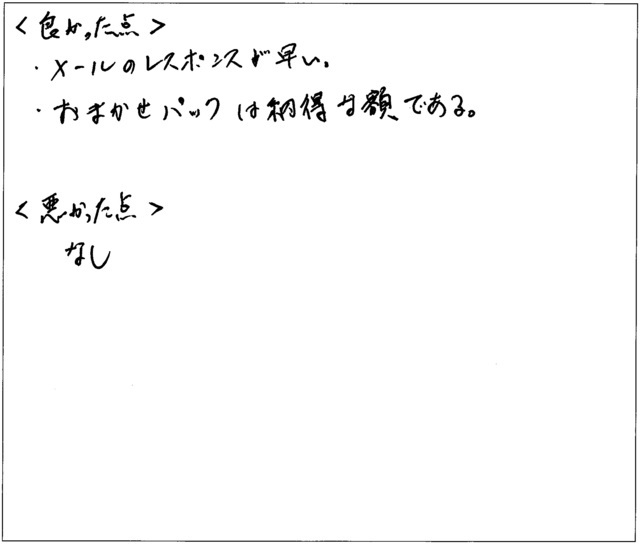 ＜良かった点＞
・メールのレスポンスが早い。
・おまかせパックは納得な額である。
＜悪かった点＞
なし